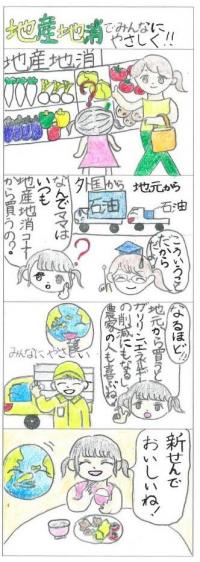 地産地消でみんなに
やさしく!!
地産地消
?
なんでママは
いつも
地産地消コーナー
から買うの?
?
外国から
石油
地元から
石油
こういうこと
だから
なるほど!!
地元から買うと
ガソリン、エネルギー
の削減にもなるし
農家の人も喜ぶね。
みんなにやさしい
新せんで
おいしいね!